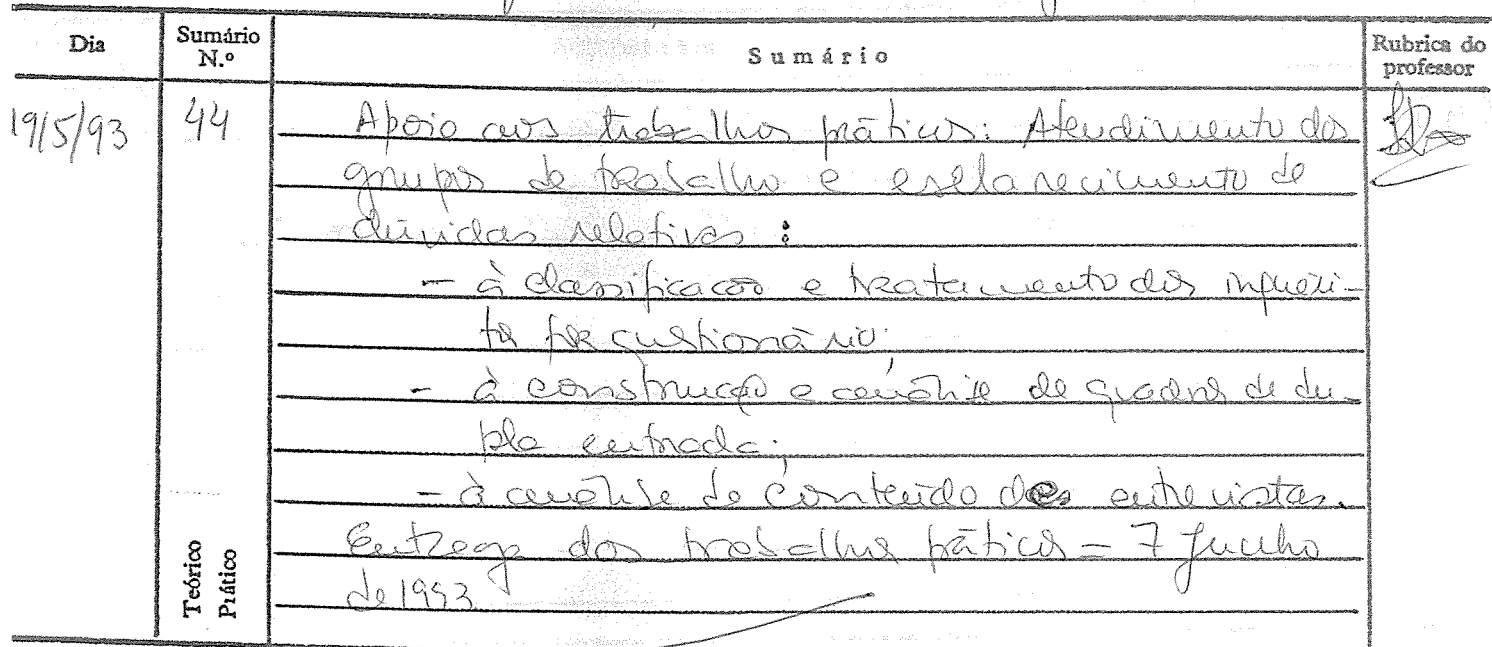 Dia
Sumário N.º
Sumário
Rubrica do professor
19/5/93
44
Apoio aos trabalhos práticos: Atendimento dos
grupos de trabalho e esclarecimento de
dúvidas relativas :
- à classificação e tratamento dos inquéri-
to por questionário;
- à construção e análise de quadros de du-
pla entrada;
- à análise de conteúdo das entrevistas.
Entrega dos trabalhos práticos = 7 Junho
de 1993
Teórico
Prático